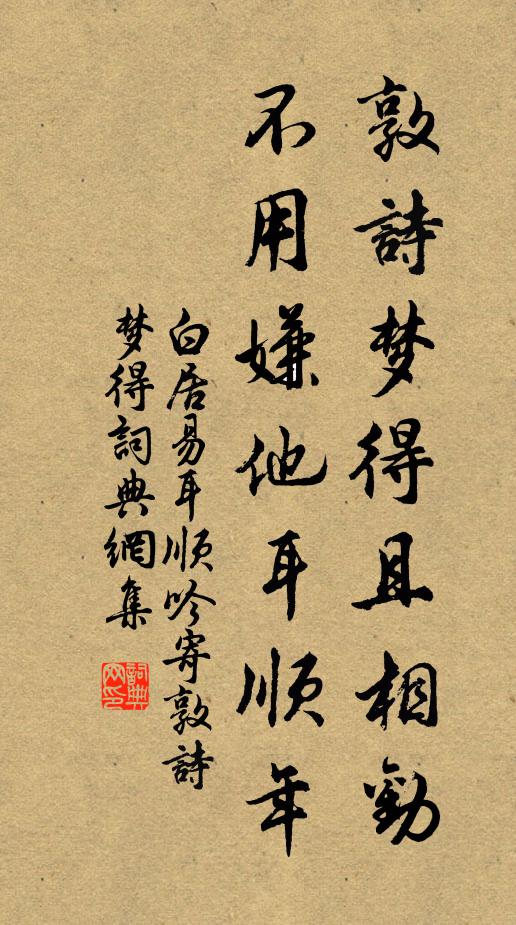 敦詩梦得且相勸
不用嫌他耳順年
白居易耳順吟寄敦詩
梦得詞典網集
詞典网印